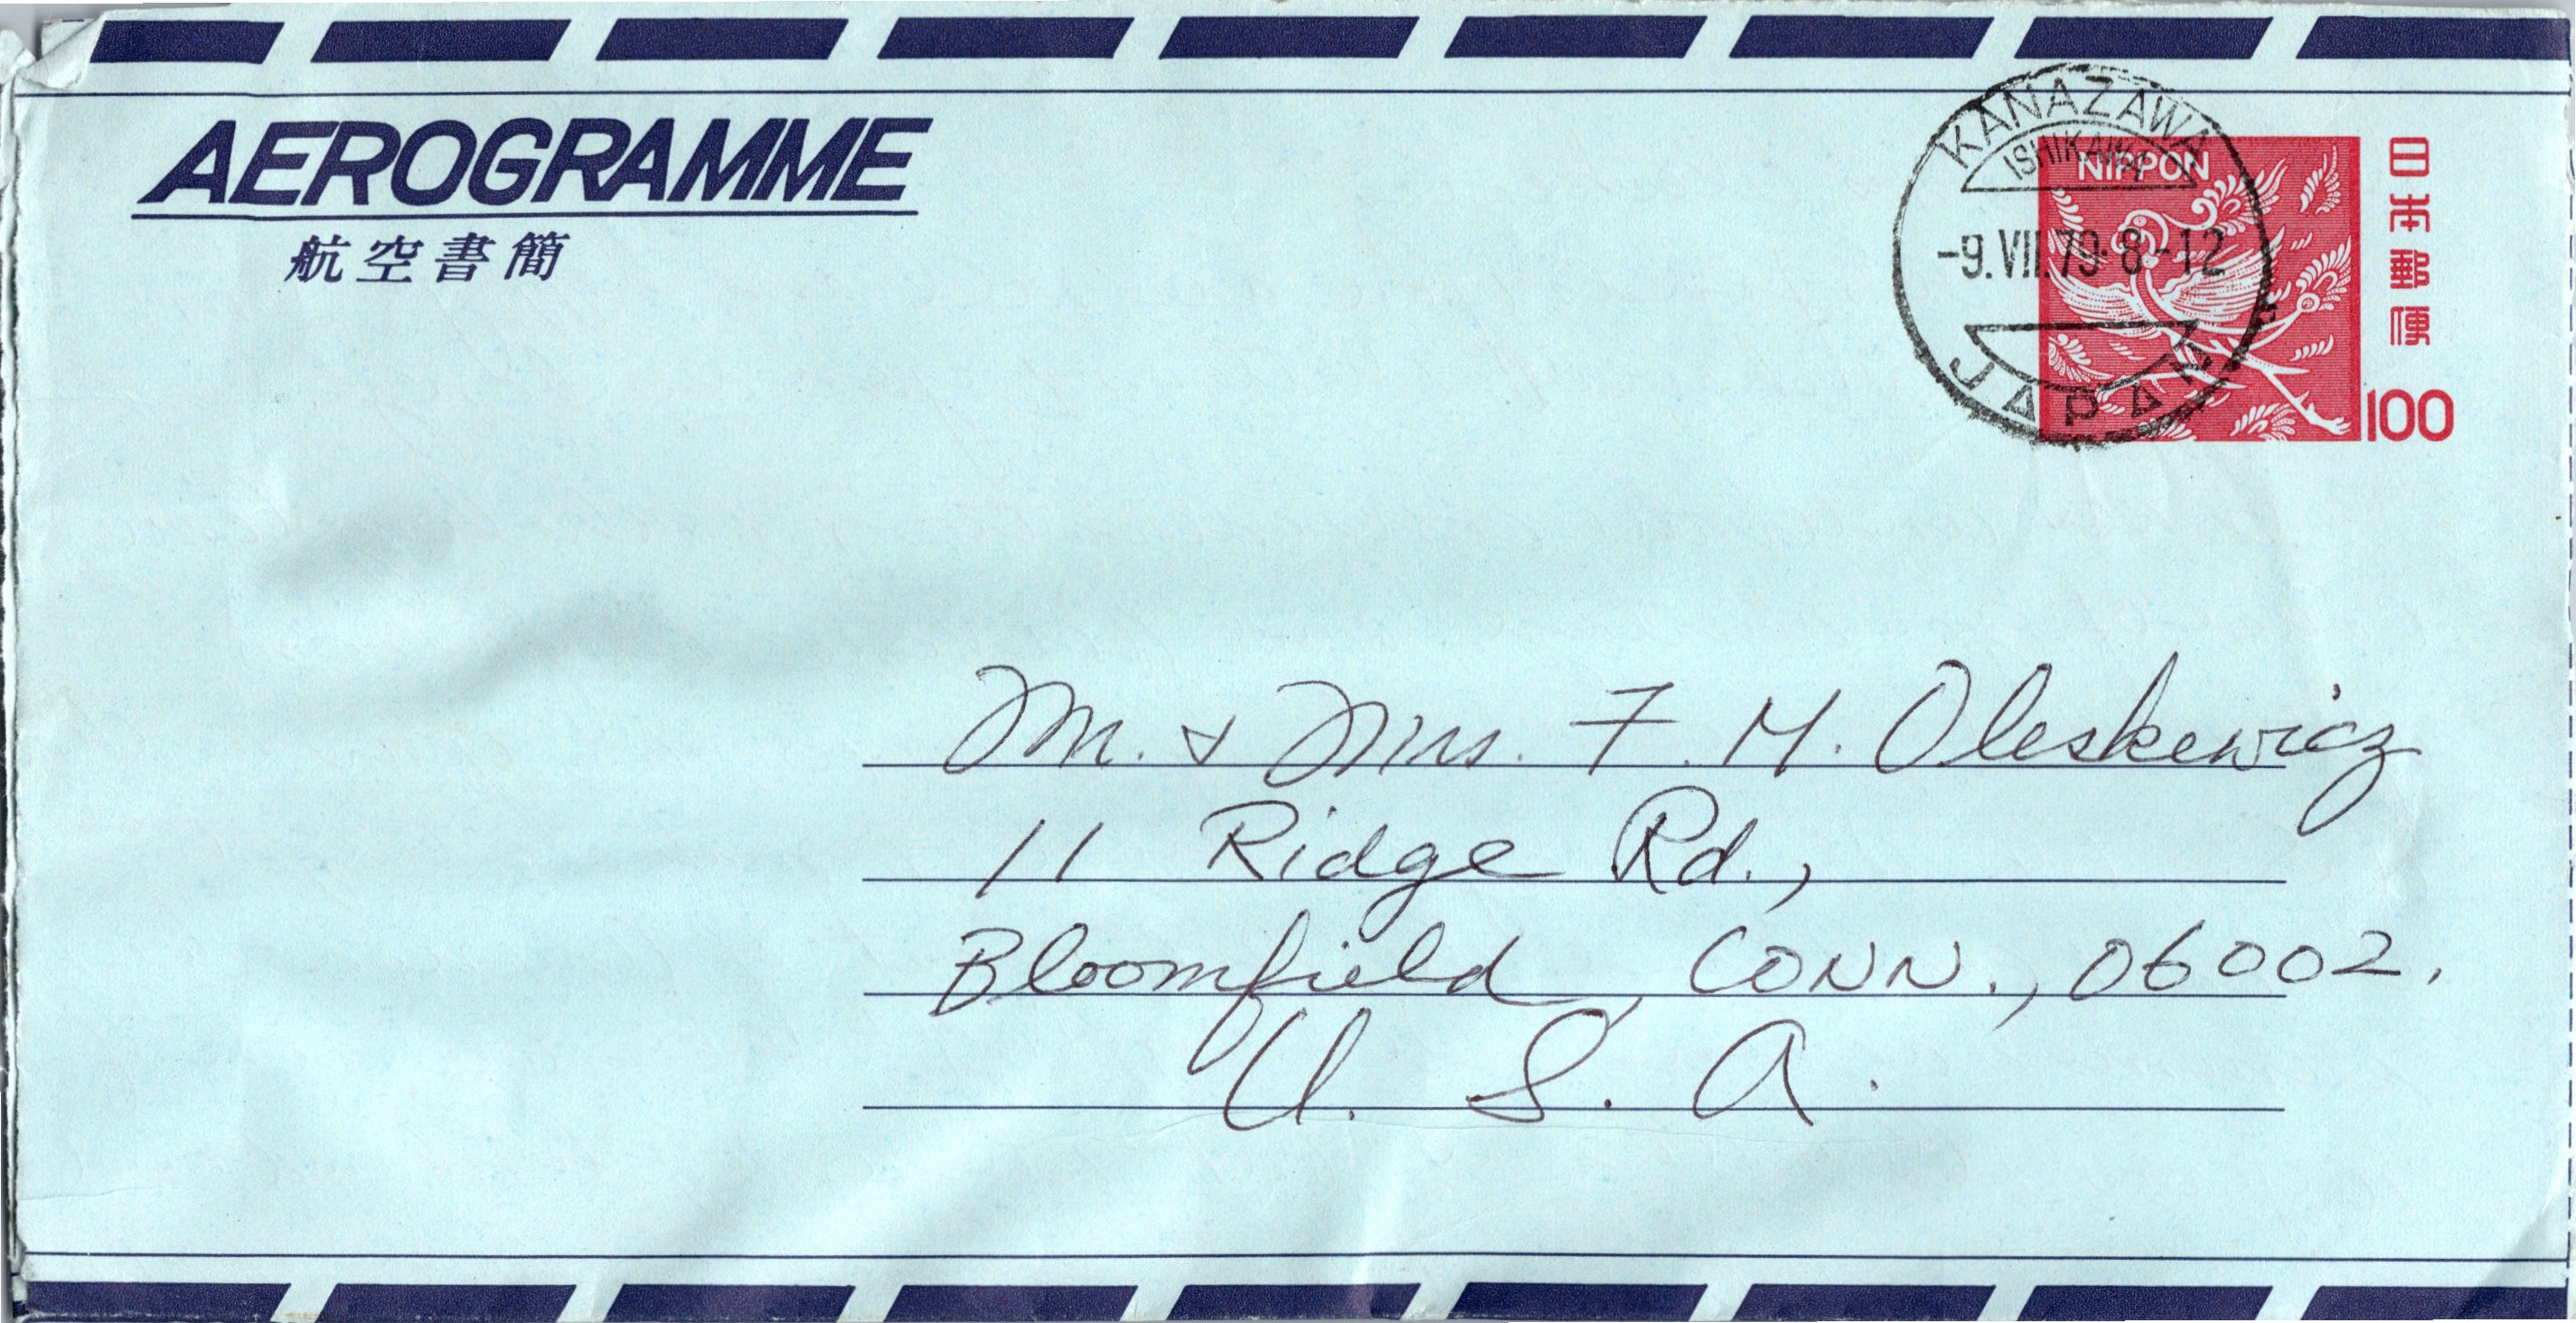 AEROGRAMME
航空書簡
KANAZAWA
ISHIKAWA
-9.VII.79.8-12
JAPAN
NIPPON
日本郵便
100
M. & Mrs. F. M. Oleskewicz
11 Ridge Rd.,
Bloomfield, CONN., 06002.
U. S. A.